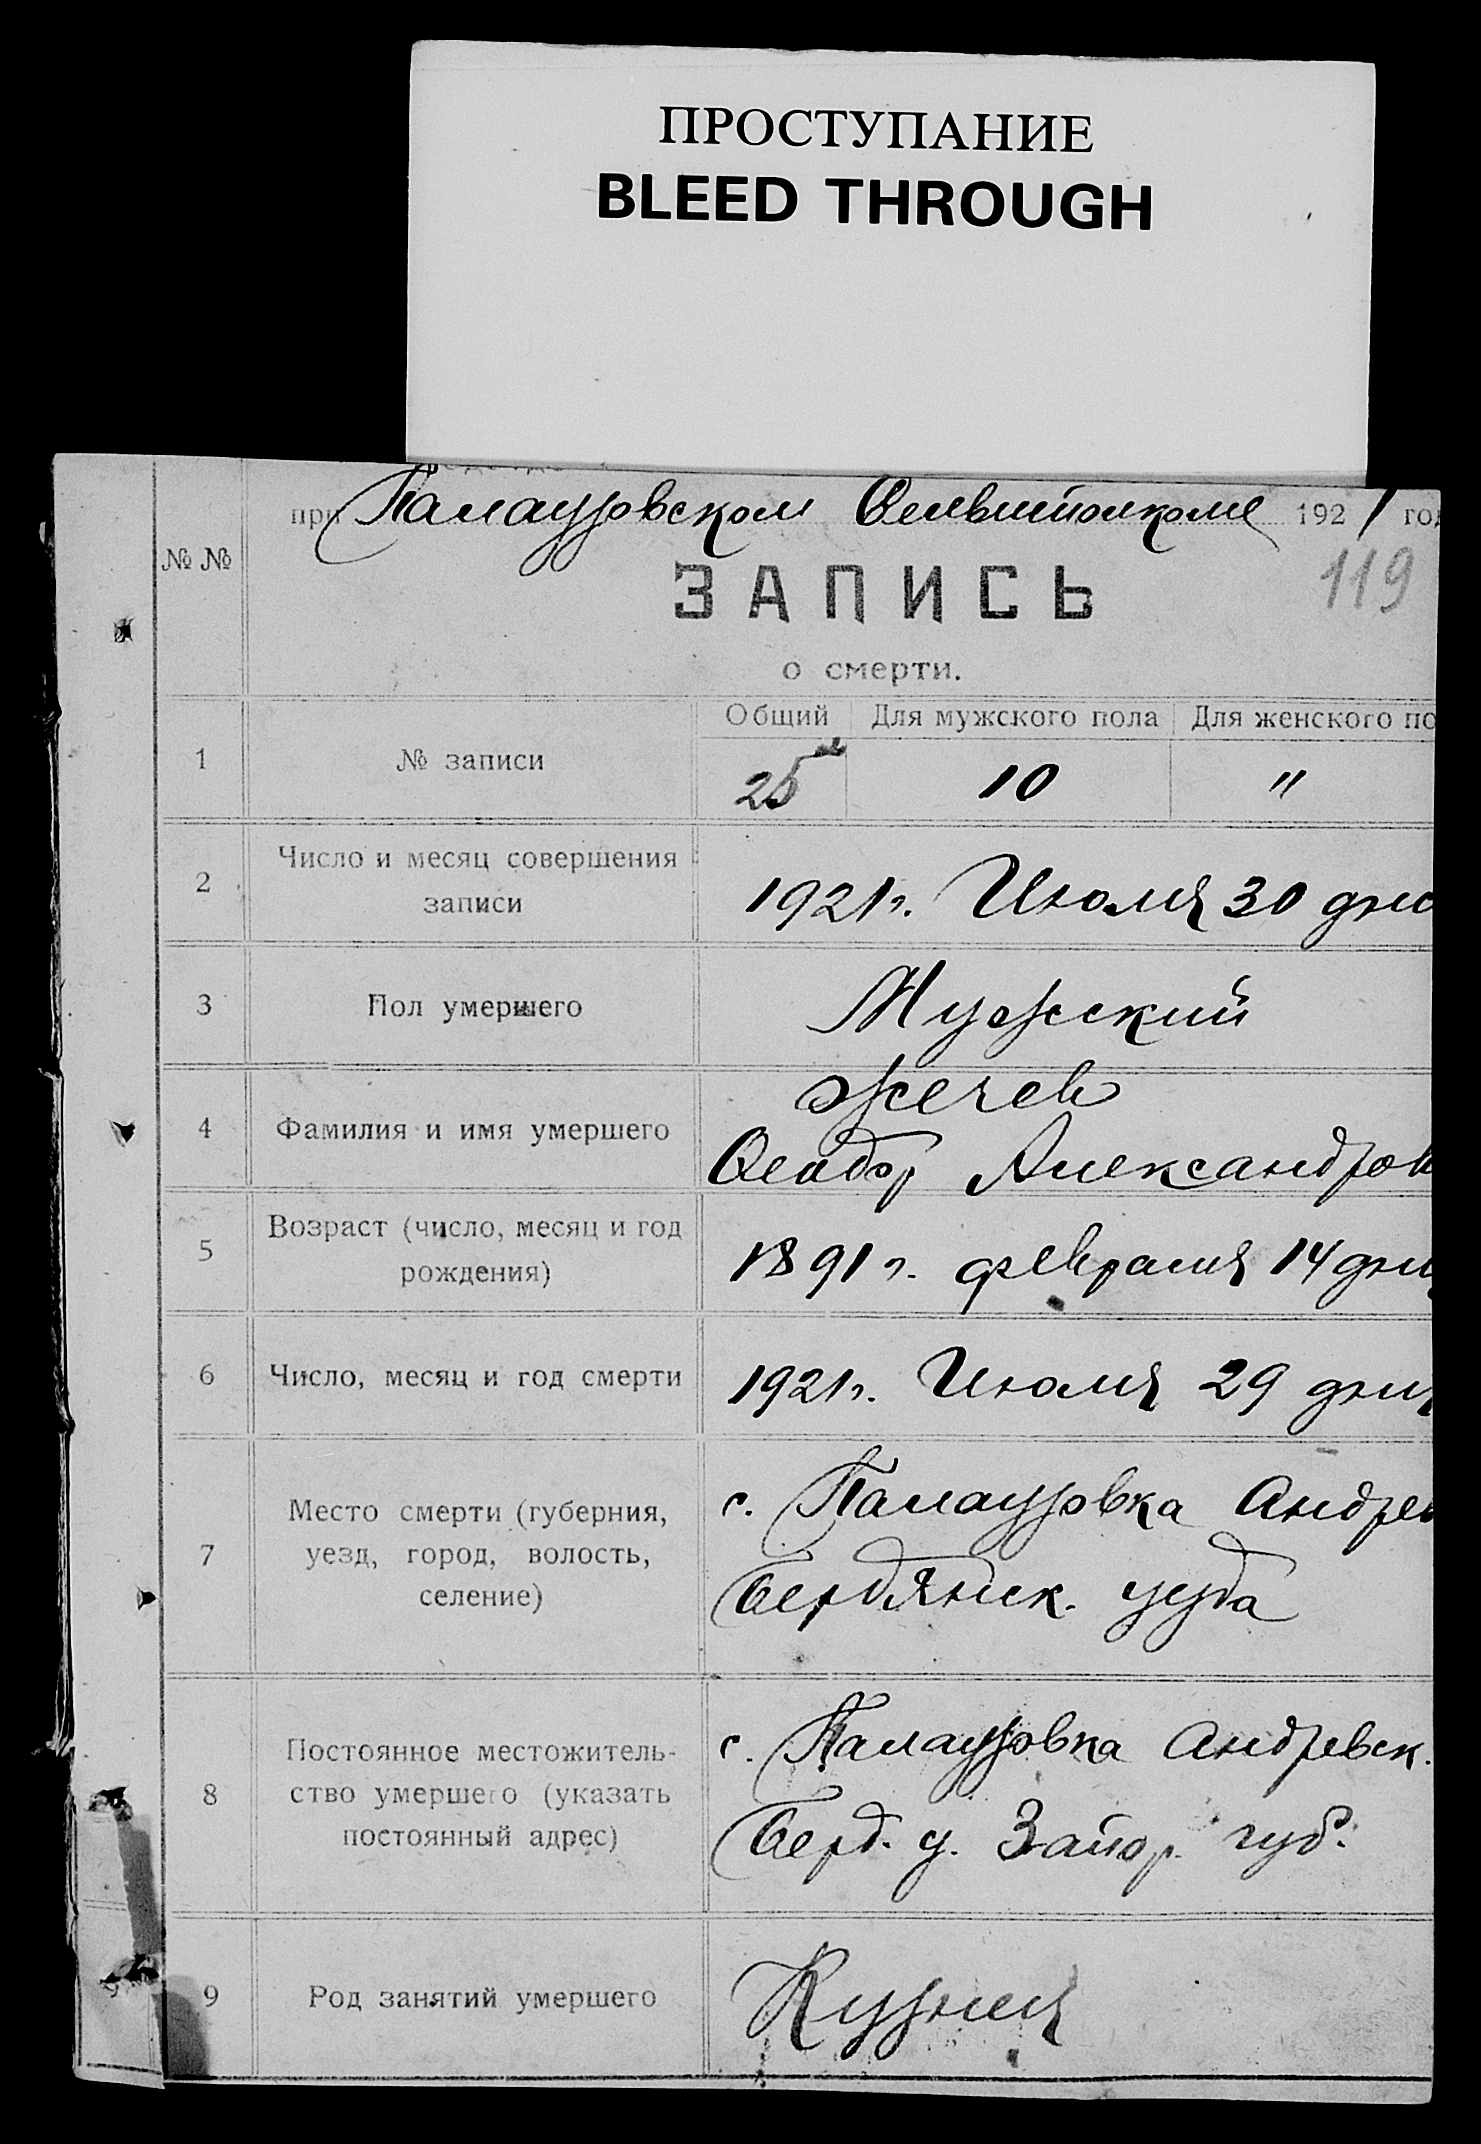 ПРОСТУПАНИЕ
BLEED THROUGH
при Палаузовском 1921 го
№№
119
ЗАПИСЬ
о смерти.
Общий Для мужского пола Для женского по
1 № записи 25 10 "
2 Число и месяц совершения записи 1921г. Июля 30 дн
3 Пол умершего Мужский
4 Фамилия и имя умершего Жечев
Феодор Александров
5 Возраст (число, месяц и год рождения) 1891 г. февраля 14 дня
6 Число, месяц и год смерти 1921г. Июля 29 дня
7 Место смерти (губерния, уезд, город, волость, селение) с. Палаузовка Андрев
Бердянск. уезда
8 Постоянное местожитель-
ство умершего (указать постоянный адрес) с. Палаузовка Андревск.
Берд. у. Запор. губ.
9 Род занятий умершего